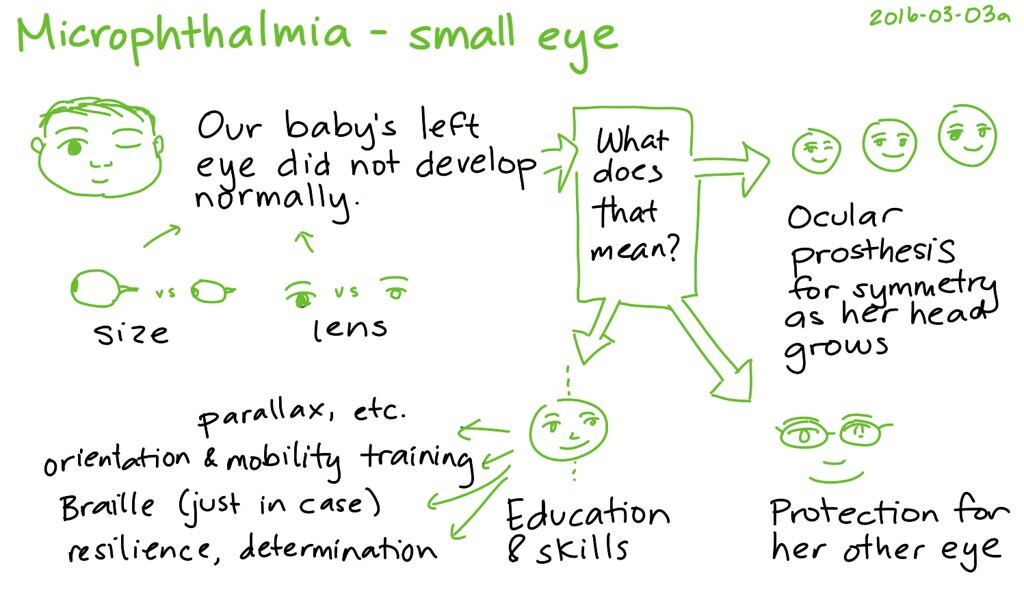 Microphthalmia - small eye
2016-03-03a
Our baby's left
eye did not develop
normally.
vs
size
vs
lens
What
does
that
mean?
Ocular
prosthesis
for symmetry
as her head
grows
Protection for
her other eye
Education
& skills
parallax, etc.
orientation & mobility training
Braille (just in case)
resilience, determination